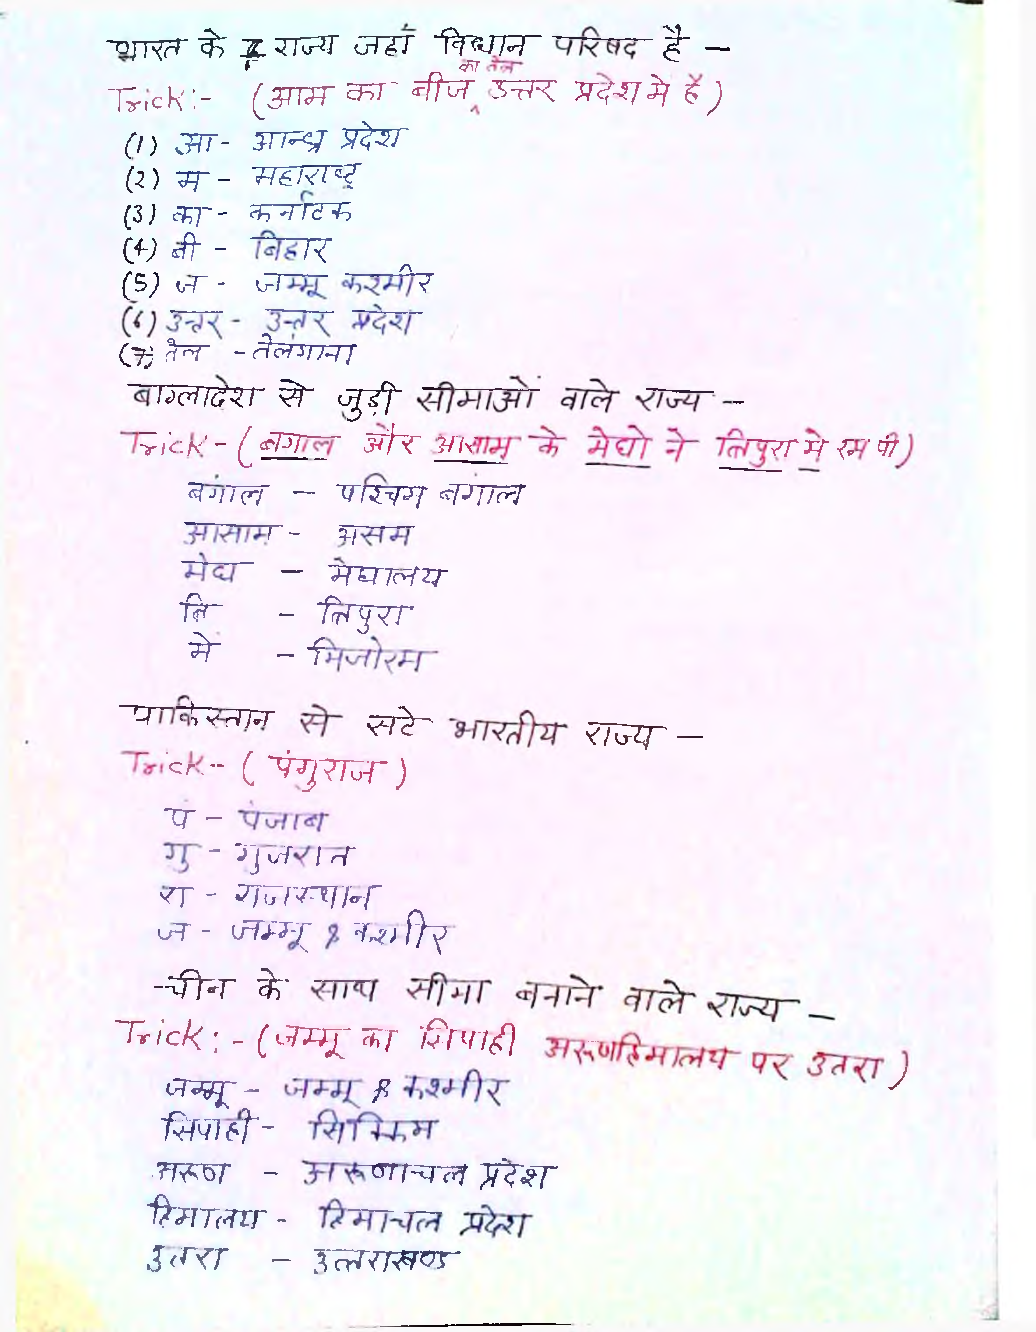 भारत के 7 राज्य जहाँ विधान परिषद है -
का तेल
Trick:- (आम का बीज ^ उत्तर प्रदेश मे है)
(1) आ - आन्ध्र प्रदेश
(2) म - महाराष्ट्र
(3) का - कर्नाटक
(4) बी - बिहार
(5) ज - जम्मू कश्मीर
(6) उत्तर - उत्तर प्रदेश
(7) तेल - तेलंगाना
बाग्लादेश से जुड़ी सीमाओं वाले राज्य -
Trick - (बगाल और आसाम के मेघो ने त्रिपुरा मे रम पी)
बगांल - पश्चिम बगांल
आसाम - असम
मेघ - मेघालय
त्रि - त्रिपुरा
में - मिजोरम
पाकिस्तान से सटे भारतीय राज्य -
Trick - ( पंगुराज )
पं - पंजाब
गु - गुजरात
रा - राजस्थान
ज - जम्मू & कश्मीर
चीन के साथ सीमा बनाने वाले राज्य -
Trick : - (जम्मू का सिपाही अरूणहिमालय पर उतरा)
जम्मू - जम्मू & कश्मीर
सिपाही - सिक्किम
अरूण - अरूणाचल प्रदेश
हिमालय - हिमाचल प्रदेश
उतरा - उत्तराखण्ड